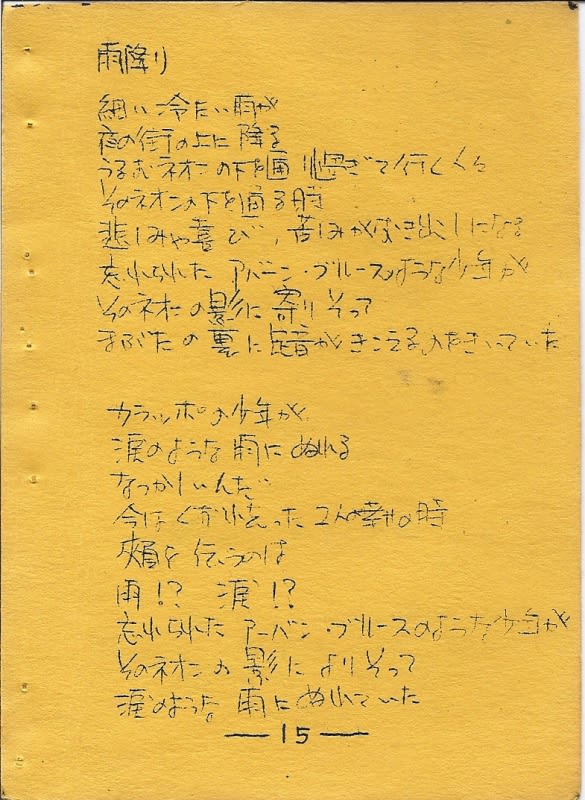 雨降り
細い冷たい雨が
夜の街の上に降る
うるむネオンの下を通り過ぎて行く人々
そのネオンの下を通る時
悲しみや喜び、苦しみがむき出しになる
忘れられた アーバン・ブルースのような少年が
そのネオンの影に寄りそって
まぶたの裏に足音がきこえるのをきいていた
カラッポの少年が
涙のような雨にぬれる
なつかしいんだ
今は 2人の幸せの時
頬を伝うのは
雨!? 涙!?
忘れられた アーバン・ブルースのような少年が
そのネオンの影によりそって
涙のような 雨にぬれていた
—15—